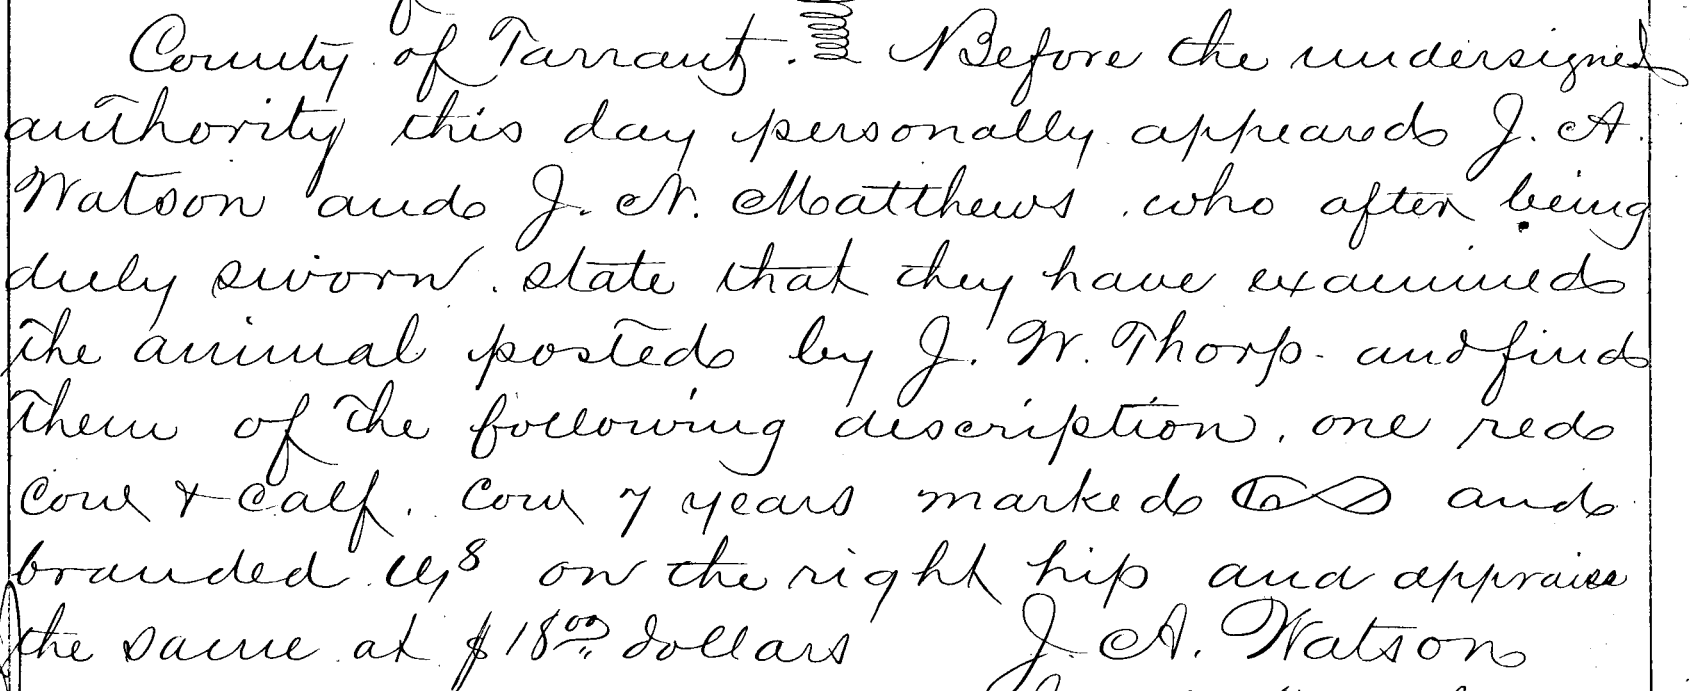 County of Tarrant. Before the undersigned
authority this day personally appeared J. A.
Watson and J. N. Matthews who after being
duly sworn. state that they have examined
the animal posted by J. W. Thorp. and find
them of the following description, one red
Cow & calf. Cow 7 years marked and
branded on the right hip and appraise
the same at $18.00 dollars J. A. Watson